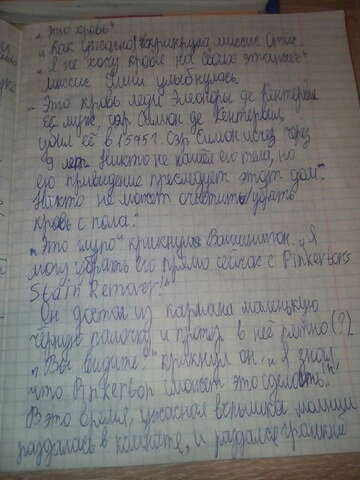 „Это кровь"
„Как ужасно! вкрикнула миссис Отис.
Я не хочу крови на моих этажах"
Миссис Амни улыбнулась
„Это кровь леди Элеоноры де Кентервил
Её муж, сэр Симон де Кентервил,
убил её в 1575г. Сэр Симон исчез через
9 лет. Никто не нашёл его тела, но
его привидение преследует этот дом.
Никто не может очистить/убрать
кровь с пола."
„Это глупо" крикнул Вашингтон. „Я
могу убрать его прямо сейчас с Pinkerton's
Stain Remover!"
Он достал из кармана маленькую
чёрную палочку и потёр в неё пятно (?)
„Вы видите!" крикнул он, „Я знал,
что Pinkerton сможет это сделать!"
В это время, ужасная вспышка молнии
раздалась в комнате, и раздался громкий